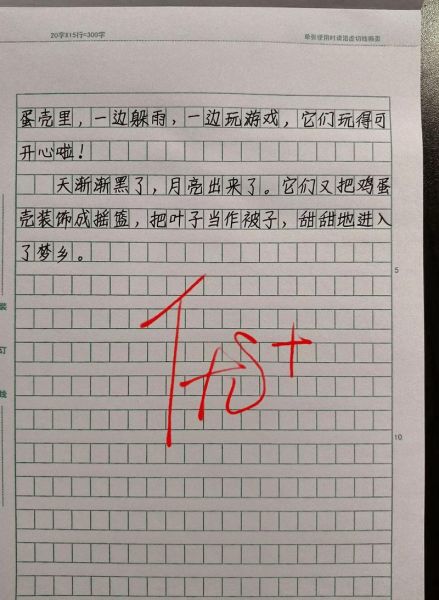 20字X15行=300字
单张使用时请沿虚切线撕页
蛋壳里，一边躲雨，一边玩游戏，它们玩得可
开心啦！
天渐渐黑了，月亮出来了。它们又把鸡蛋
壳装饰成摇篮，把叶子当作被子，甜甜地进入
了梦乡。
5
装
订
线
10